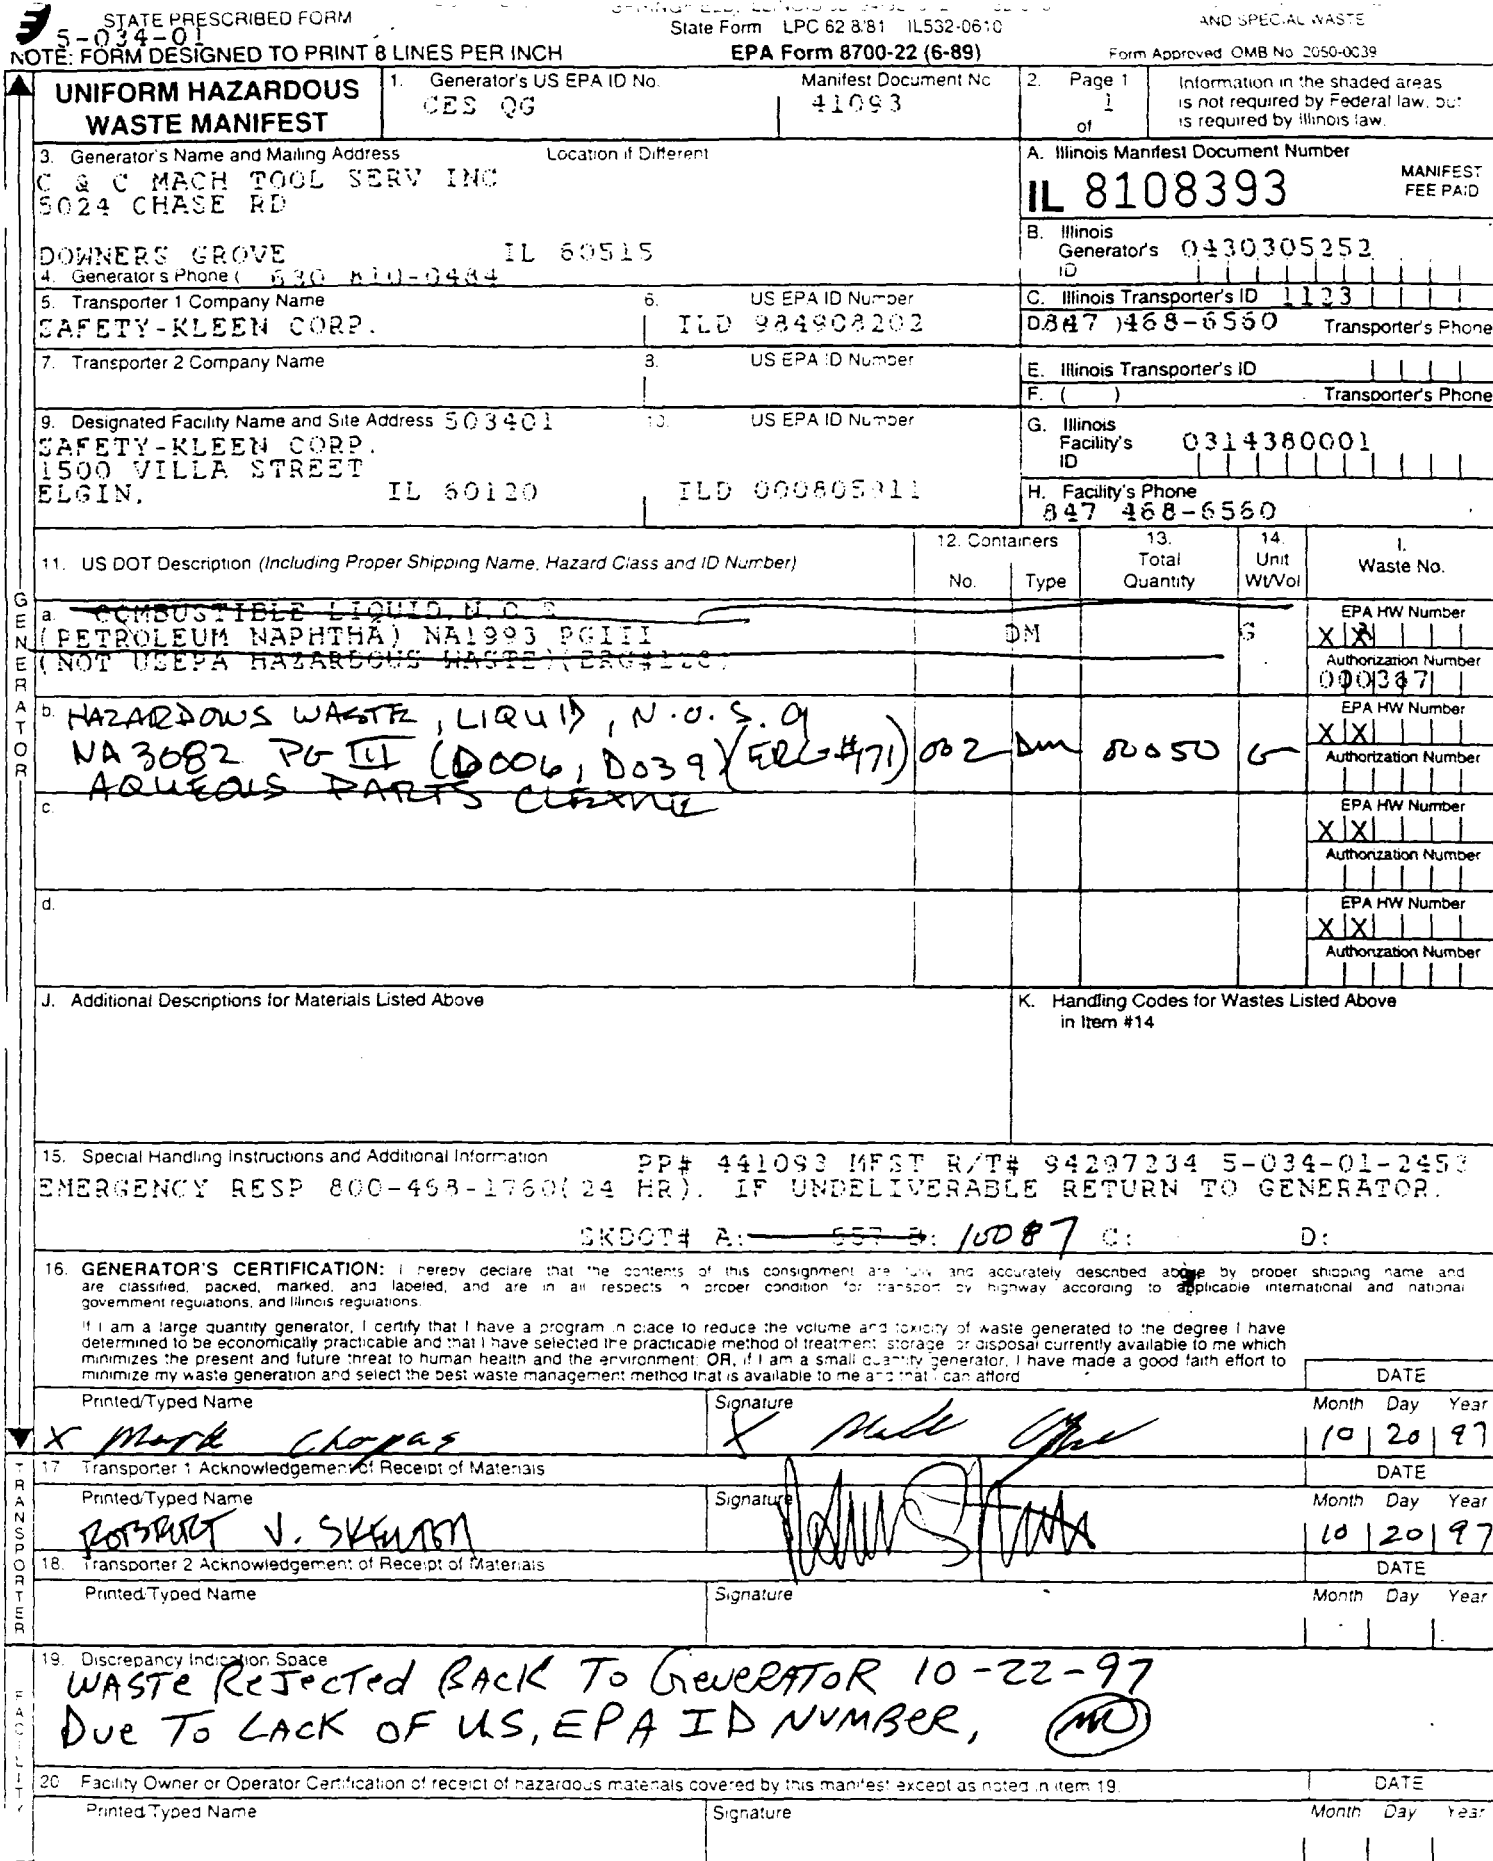 STATE PRESCRIBED FORM
5-034-01
State Form LPC 62 8/81 IL532-0610
AND SPECIAL WASTE
NOTE: FORM DESIGNED TO PRINT 8 LINES PER INCH
EPA Form 8700-22 (6-89)
Form Approved OMB No. 2050-0039
UNIFORM HAZARDOUS WASTE MANIFEST
1. Generator's US EPA ID No.
CES QG
Manifest Document No
41093
2. Page 1
of 1
Information in the shaded areas
is not required by Federal law, but
is required by Illinois law.
3. Generator's Name and Mailing Address Location if Different
C & C MACH TOOL SERV INC
5024 CHASE RD
DOWNERS GROVE IL 60515
4. Generator's Phone ( 630 810-0484
A. Illinois Manifest Document Number
IL 8108393
MANIFEST
FEE PAID
B. Illinois
Generator's 0430305252
ID
5. Transporter 1 Company Name
SAFETY-KLEEN CORP.
6. US EPA ID Number
ILD 984908202
C. Illinois Transporter's ID 1123
D. 847 )468-6560 Transporter's Phone
7. Transporter 2 Company Name
8. US EPA ID Number
E. Illinois Transporter's ID
F. ( ) Transporter's Phone
9. Designated Facility Name and Site Address 503401
SAFETY-KLEEN CORP.
1500 VILLA STREET
ELGIN, IL 60120
10. US EPA ID Number
ILD 000805911
G. Illinois
Facility's 0314380001
ID
H. Facility's Phone
847 468-6560
11. US DOT Description (Including Proper Shipping Name, Hazard Class and ID Number)
12. Containers
No. Type
13.
Total
Quantity
14.
Unit
Wt/Vol
I.
Waste No.
GENERATOR
a. COMBUSTIBLE LIQUID, N.O.S.
(PETROLEUM NAPHTHA) NA1993 PGIII DM G
(NOT USEPA HAZARDOUS WASTE)(ERG#128)
EPA HW Number
X X
Authorization Number
000367
b. HAZARDOUS WASTE, LIQUID, N.O.S. 9
NA3082 PG III (D006, D039)(ERG#171) 002 Dm 00050 G
AQUEOUS PARTS CLEANE
EPA HW Number
X X
Authorization Number
c.
EPA HW Number
X X
Authorization Number
d.
EPA HW Number
X X
Authorization Number
J. Additional Descriptions for Materials Listed Above
K. Handling Codes for Wastes Listed Above
in Item #14
15. Special Handling Instructions and Additional Information PP# 441093 MFST R/T# 94297234 5-034-01-2453
EMERGENCY RESP 800-468-1760(24 HR). IF UNDELIVERABLE RETURN TO GENERATOR.
SKDOT# A: 557 B: 10087 C: D:
16. GENERATOR'S CERTIFICATION: I hereby declare that the contents of this consignment are fully and accurately described above by proper shipping name and
are classified, packed, marked, and labeled, and are in all respects in proper condition for transport by highway according to applicable international and national
government regulations, and Illinois regulations.
If I am a large quantity generator, I certify that I have a program in place to reduce the volume and toxicity of waste generated to the degree I have
determined to be economically practicable and that I have selected the practicable method of treatment, storage, or disposal currently available to me which
minimizes the present and future threat to human health and the environment; OR, if I am a small quantity generator, I have made a good faith effort to
minimize my waste generation and select the best waste management method that is available to me and that I can afford
DATE
Printed/Typed Name Signature Month Day Year
X Mark Chopas X 10 20 97
TRANSPORTER
17 Transporter 1 Acknowledgement of Receipt of Materials DATE
Printed/Typed Name Signature Month Day Year
ROBERT J. SKELTON 10 20 97
18. Transporter 2 Acknowledgement of Receipt of Materials DATE
Printed/Typed Name Signature Month Day Year
FACILITY
19. Discrepancy Indication Space
WASTE REJECTED BACK TO GENERATOR 10-22-97
DUE TO LACK OF U.S. EPA ID NUMBER,
20 Facility Owner or Operator Certification of receipt of hazardous materials covered by this manifest except as noted in item 19. DATE
Printed/Typed Name Signature Month Day Year